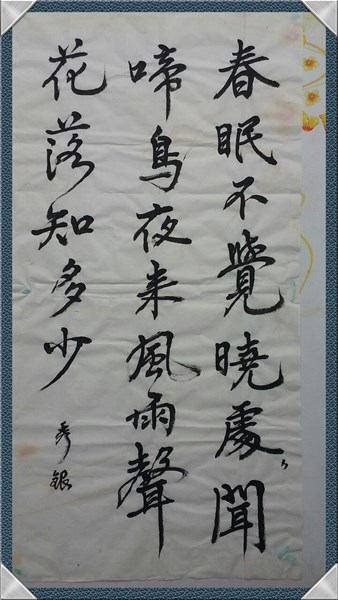 春眠不覺曉處〻聞
啼鳥夜来風雨聲
花落知多少
秀銀